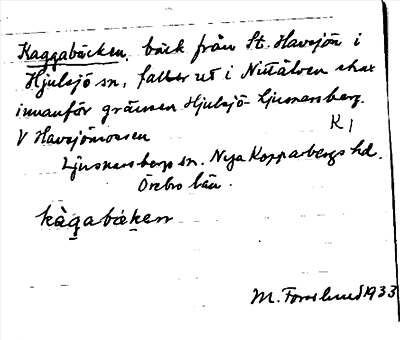 Kaggabäcken, bäck från St. Havsjön i
Hjulsjö sn, faller ut i Nittälven strax
innanför gränsen Hjulsjö-Ljusnarsberg.
K 1
V Havsjömossen
Ljusnarsbergs sn. Nya Kopparbergs hd.
Örebro län.
kàgabæken
M. Forslund 1933